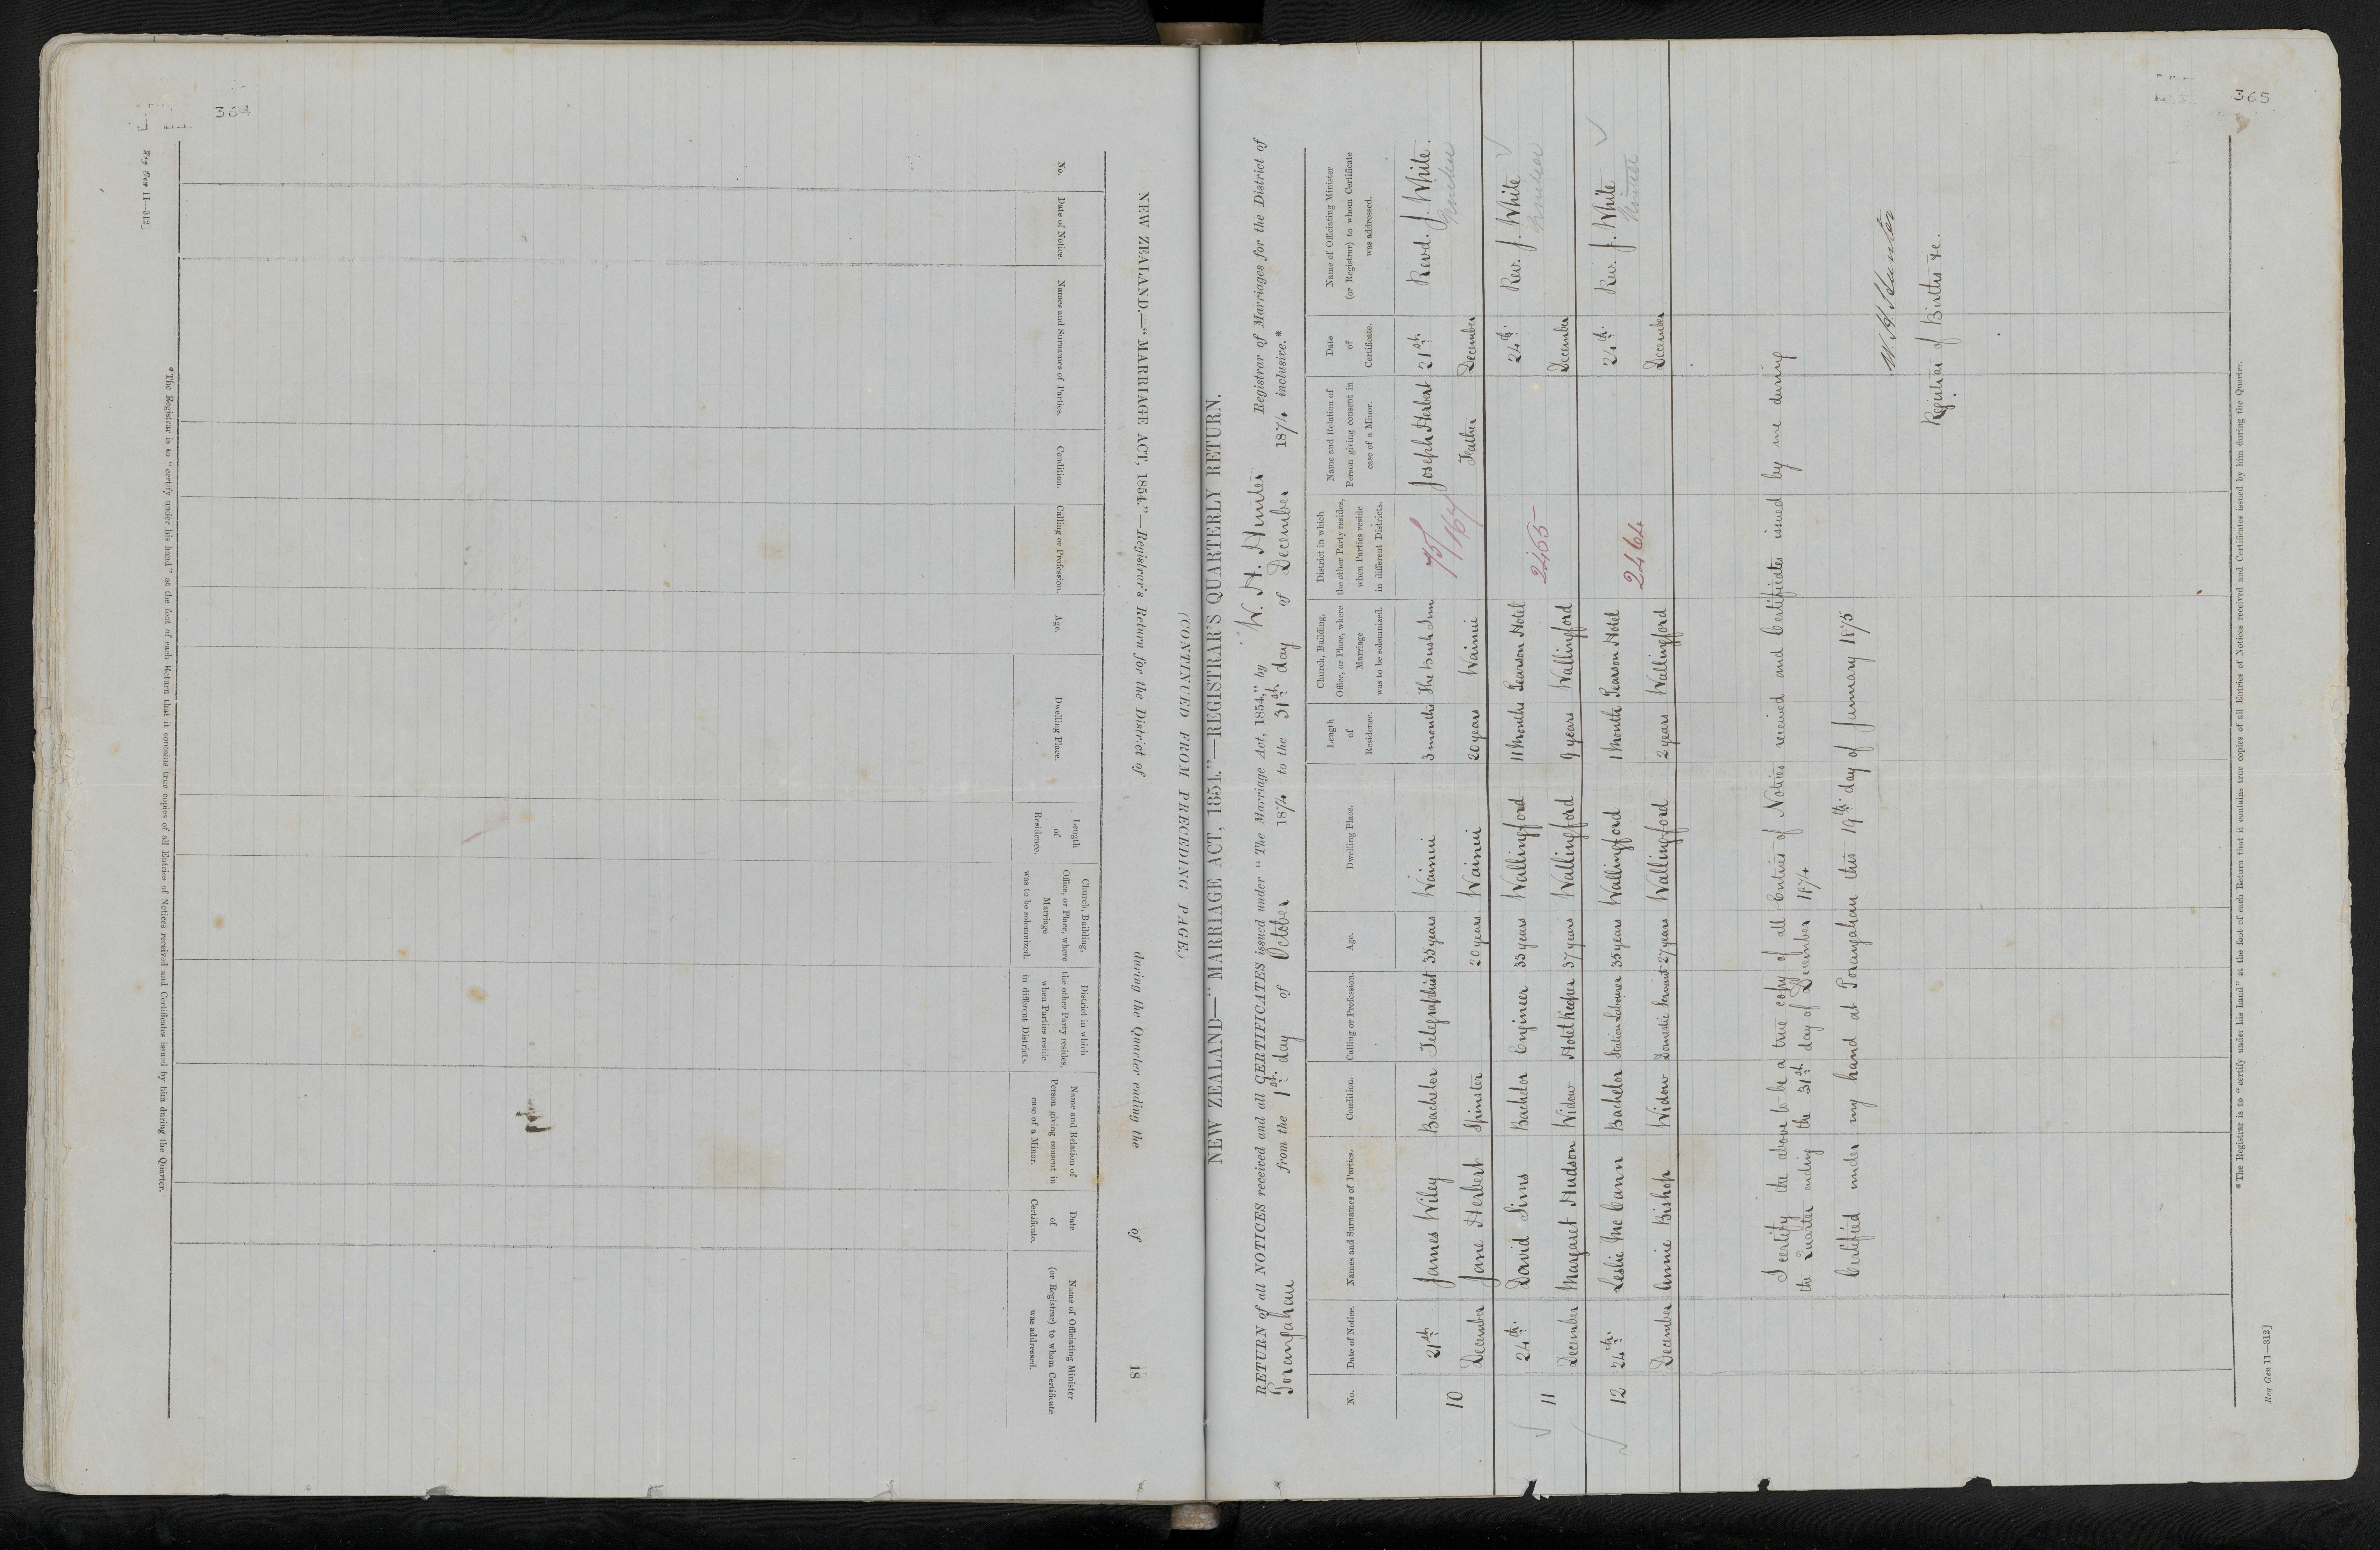 364
Reg Gen 11—312]
NEW ZEALAND.—"MARRIAGE ACT, 1854."—Registrar's Return for the District of during the Quarter ending the of 18
No.
Date of Notice.
Names and Surnames of Parties.
Condition.
Calling or Profession.
Age.
Dwelling Place.
Length
of
Residence.
Church, Building,
Office, or Place, where
Marriage
was to be solemnized.
District in which
the other Party resides,
when Parties reside
in different Districts.
Name and Relation of
Person giving consent in
case of a Minor.
Date
of
Certificate.
Name of Officiating Minister
(or Registrar) to whom Certificate
was addressed.
*The Registrar is to "certify under his hand" at the foot of each Return that it contains true copies of all Entries of Notices received and Certificates issued by him during the Quarter.
(CONTINUED FROM PRECEDING PAGE)
365
NEW ZEALAND—"MARRIAGE ACT, 1854."—REGISTRAR'S QUARTERLY RETURN.
RETURN of all NOTICES received and all CERTIFICATES issued under "The Marriage Act, 1854," by W. H. Hunter Registrar of Marriages for the District of
Porangahau from the 1st day of October 1874 to the 31st day of December 1874 inclusive.*
No.
Date of Notice.
Names and Surnames of Parties.
Condition.
Calling or Profession.
Age.
Dwelling Place.
Length
of
Residence.
Church, Building,
Office, or Place, where
Marriage
was to be solemnized.
District in which
the other Party resides,
when Parties reside
in different Districts.
Name and Relation of
Person giving consent in
case of a Minor.
Date
of
Certificate.
Name of Officiating Minister
(or Registrar) to whom Certificate
was addressed.
10 21st James Wiley Bachelor Telegraphist 33 years Wainui 3 months The Bush Inn 75/164 Joseph Herbert 21st Revd. J. White.
December Jane Herbert Spinster 20 years Wainui 20 years Wainui Father December
11 24th David Sims Bachelor Engineer 33 years Wallingford 11 Months Pearson Hotel 2465 24th Rev. J. White
December Margaret Hudson Widow Hotel Keeper 37 years Wallingford 9 years Wallingford December
12 24th Leslie McCann Bachelor Station Labourer 35 years Wallingford 1 Month Pearson Hotel 2464 24th Rev. J. White
December Annie Bishop Widow Domestic Servant 27 years Wallingford 2 years Wallingford December
I certify the above to be a true copy of all Entries of Notices received and Certificates issued by me during
the Quarter ending the 31st day of December 1874
Certified under my hand at Porangahau this 19th day of January 1875
W. H. Hunter
Registrar of Births &c.
*The Registrar is to "certify under his hand" at the foot of each Return that it contains true copies of all Entries of Notices received and Certificates issued by him during the Quarter.
Reg Gen 11—312]